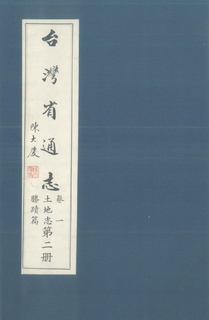 台灣省通志
陳大慶
卷一
土地志
勝蹟篇
第二册